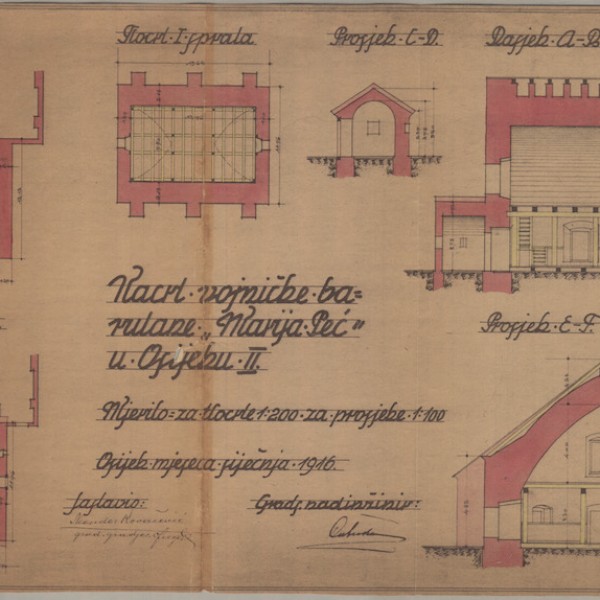 Tlocrt · I · sprata
Prosjek · C-D.
Prosjek · A-B
Nacrt · vojničke · ba=
rutane · „Marija Peć"
u · Osijeku · II.
Prosjek · E-F.
Mjerilo · za · tlocrte 1:200 · za · prosjeke · 1:100
Osijek · mjeseca · siječnja · 1916
Sastavio:
Gradj. nadinžinir: